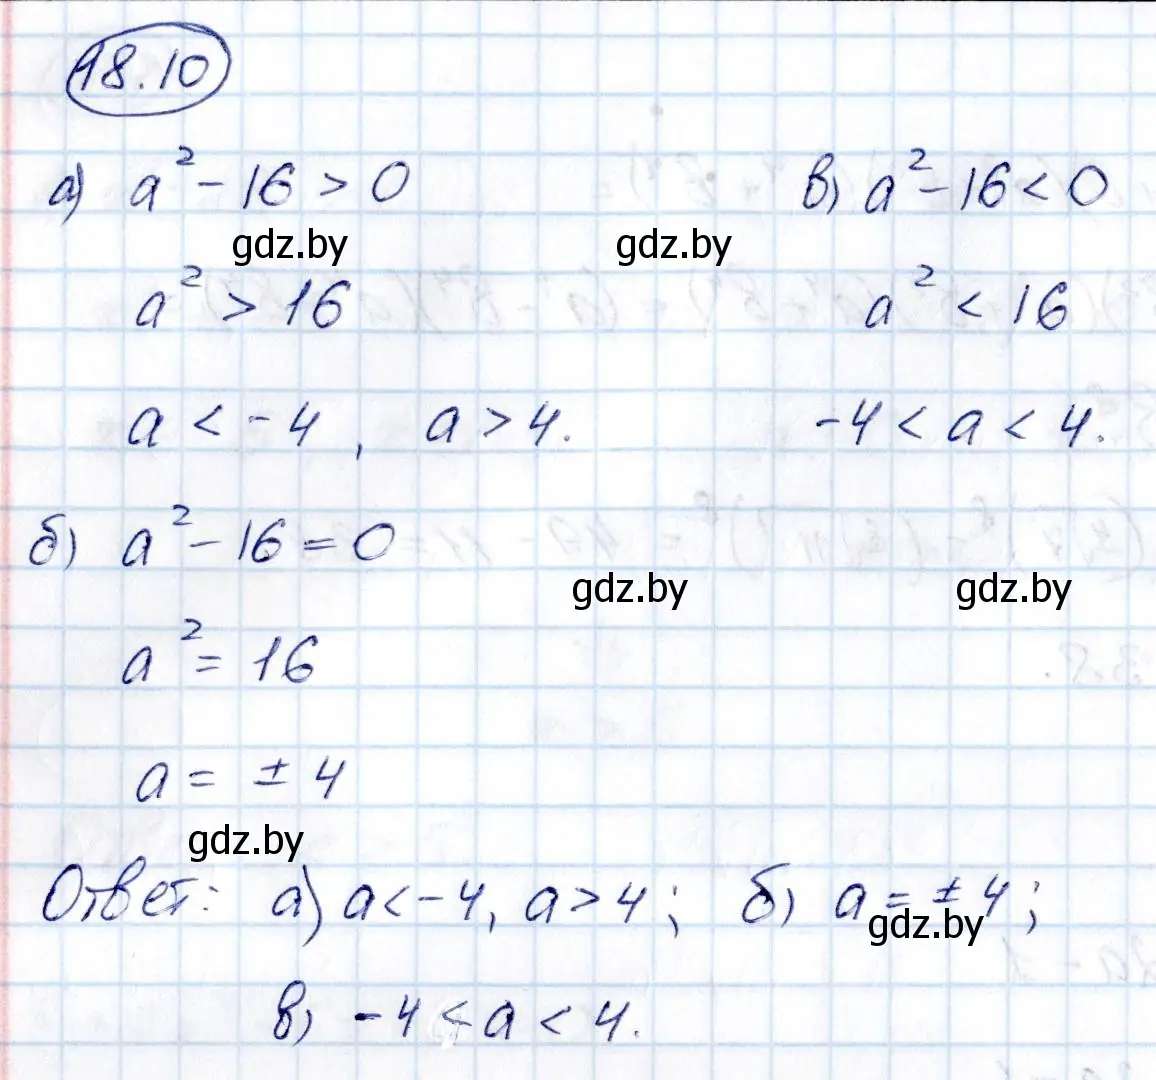 18.10
а) a² - 16 > 0
gdz.by
a² > 16
a < -4 , a > 4.
в) a² - 16 < 0
gdz.by
a² < 16
-4 < a < 4.
б) a² - 16 = 0
gdz.by
gdz.by
a² = 16
a = ± 4
gdz.by
Ответ: а) a < -4, a > 4; б) a = ± 4;
gdz.by
в) -4 < a < 4.